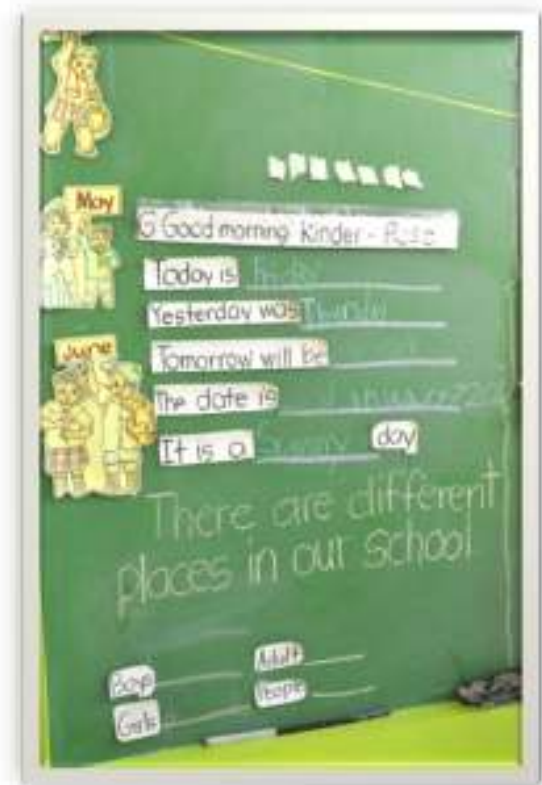 May
G Good morning Kinder - Rose
Today is Friday
Yesterday was
Tomorrow will be
June
The date is
It is a Sunny day
There are different
places in our school
Boys
Adult
Girls
People